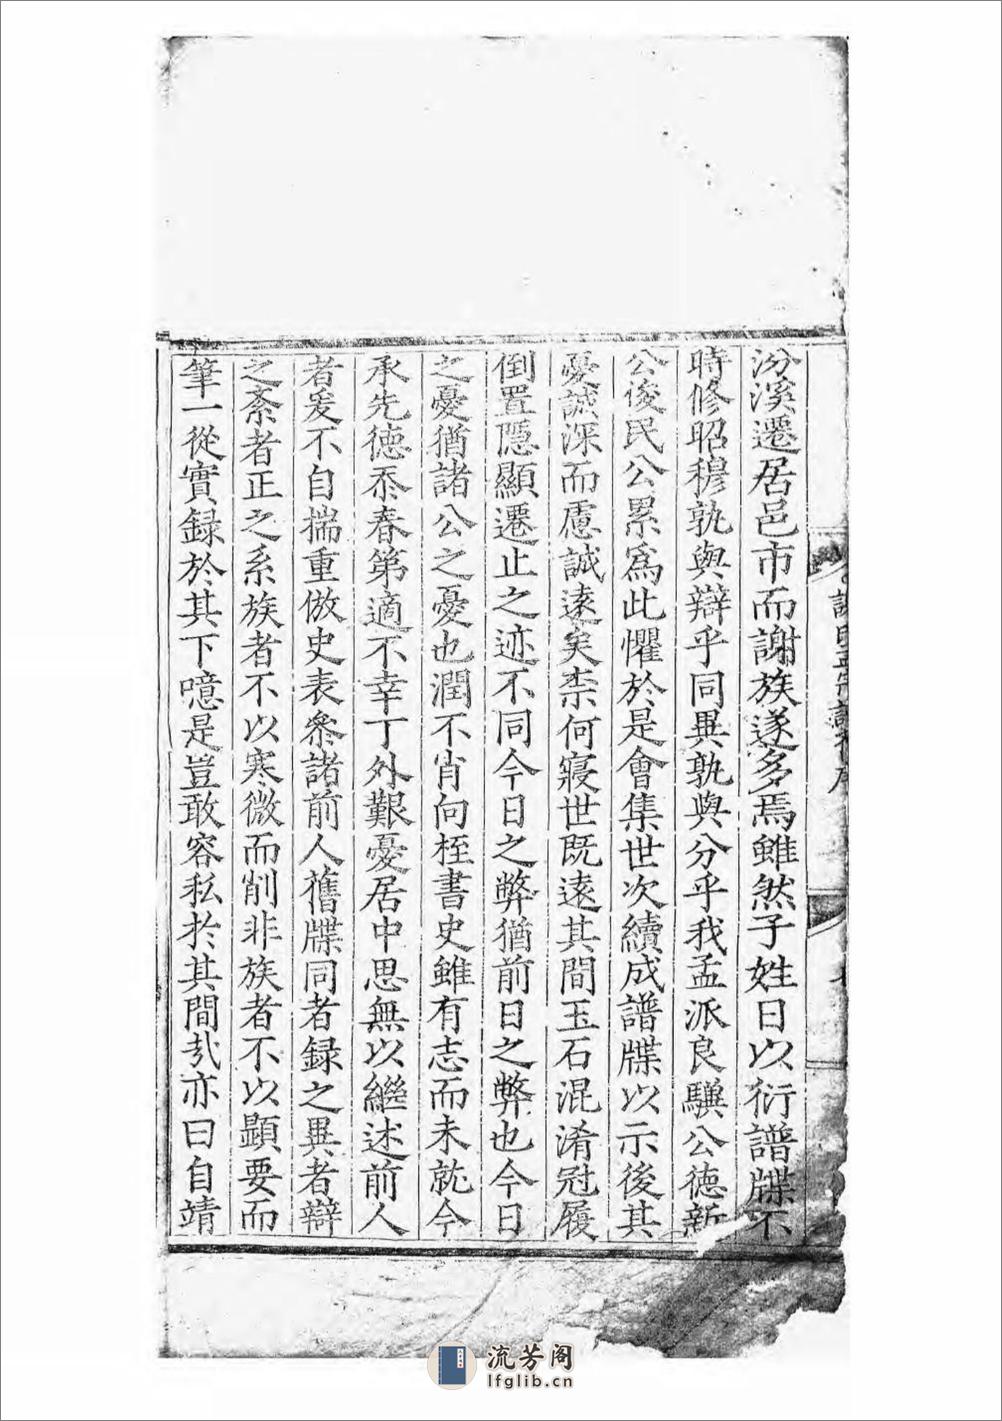 汾溪遷居邑市而謝族遂多焉雖然子姓日以衍譜牒不
時修昭穆孰與辯乎同異孰與分乎我孟派良驥公德新
公俊民公累爲此懼於是會集世次續成譜牒以示後其
憂誠深而慮誠遠矣柰何寢世既遠其間玉石混淆冠履
倒置隱顯遷止之迹不同今日之弊猶前日之弊也今日
之憂猶諸公之憂也潤不肖向桎書史雖有志而未就今
承先德忝春第適不幸丁外艱憂居中思無以繼述前人
者爰不自揣重倣史表叅諸前人舊牒同者録之異者辯
之紊者正之系族者不以寒微而削非族者不以顯要而
筆一從實録於其下噫是豈敢容私於其間哉亦曰自靖
流芳阁
lfglib.cn